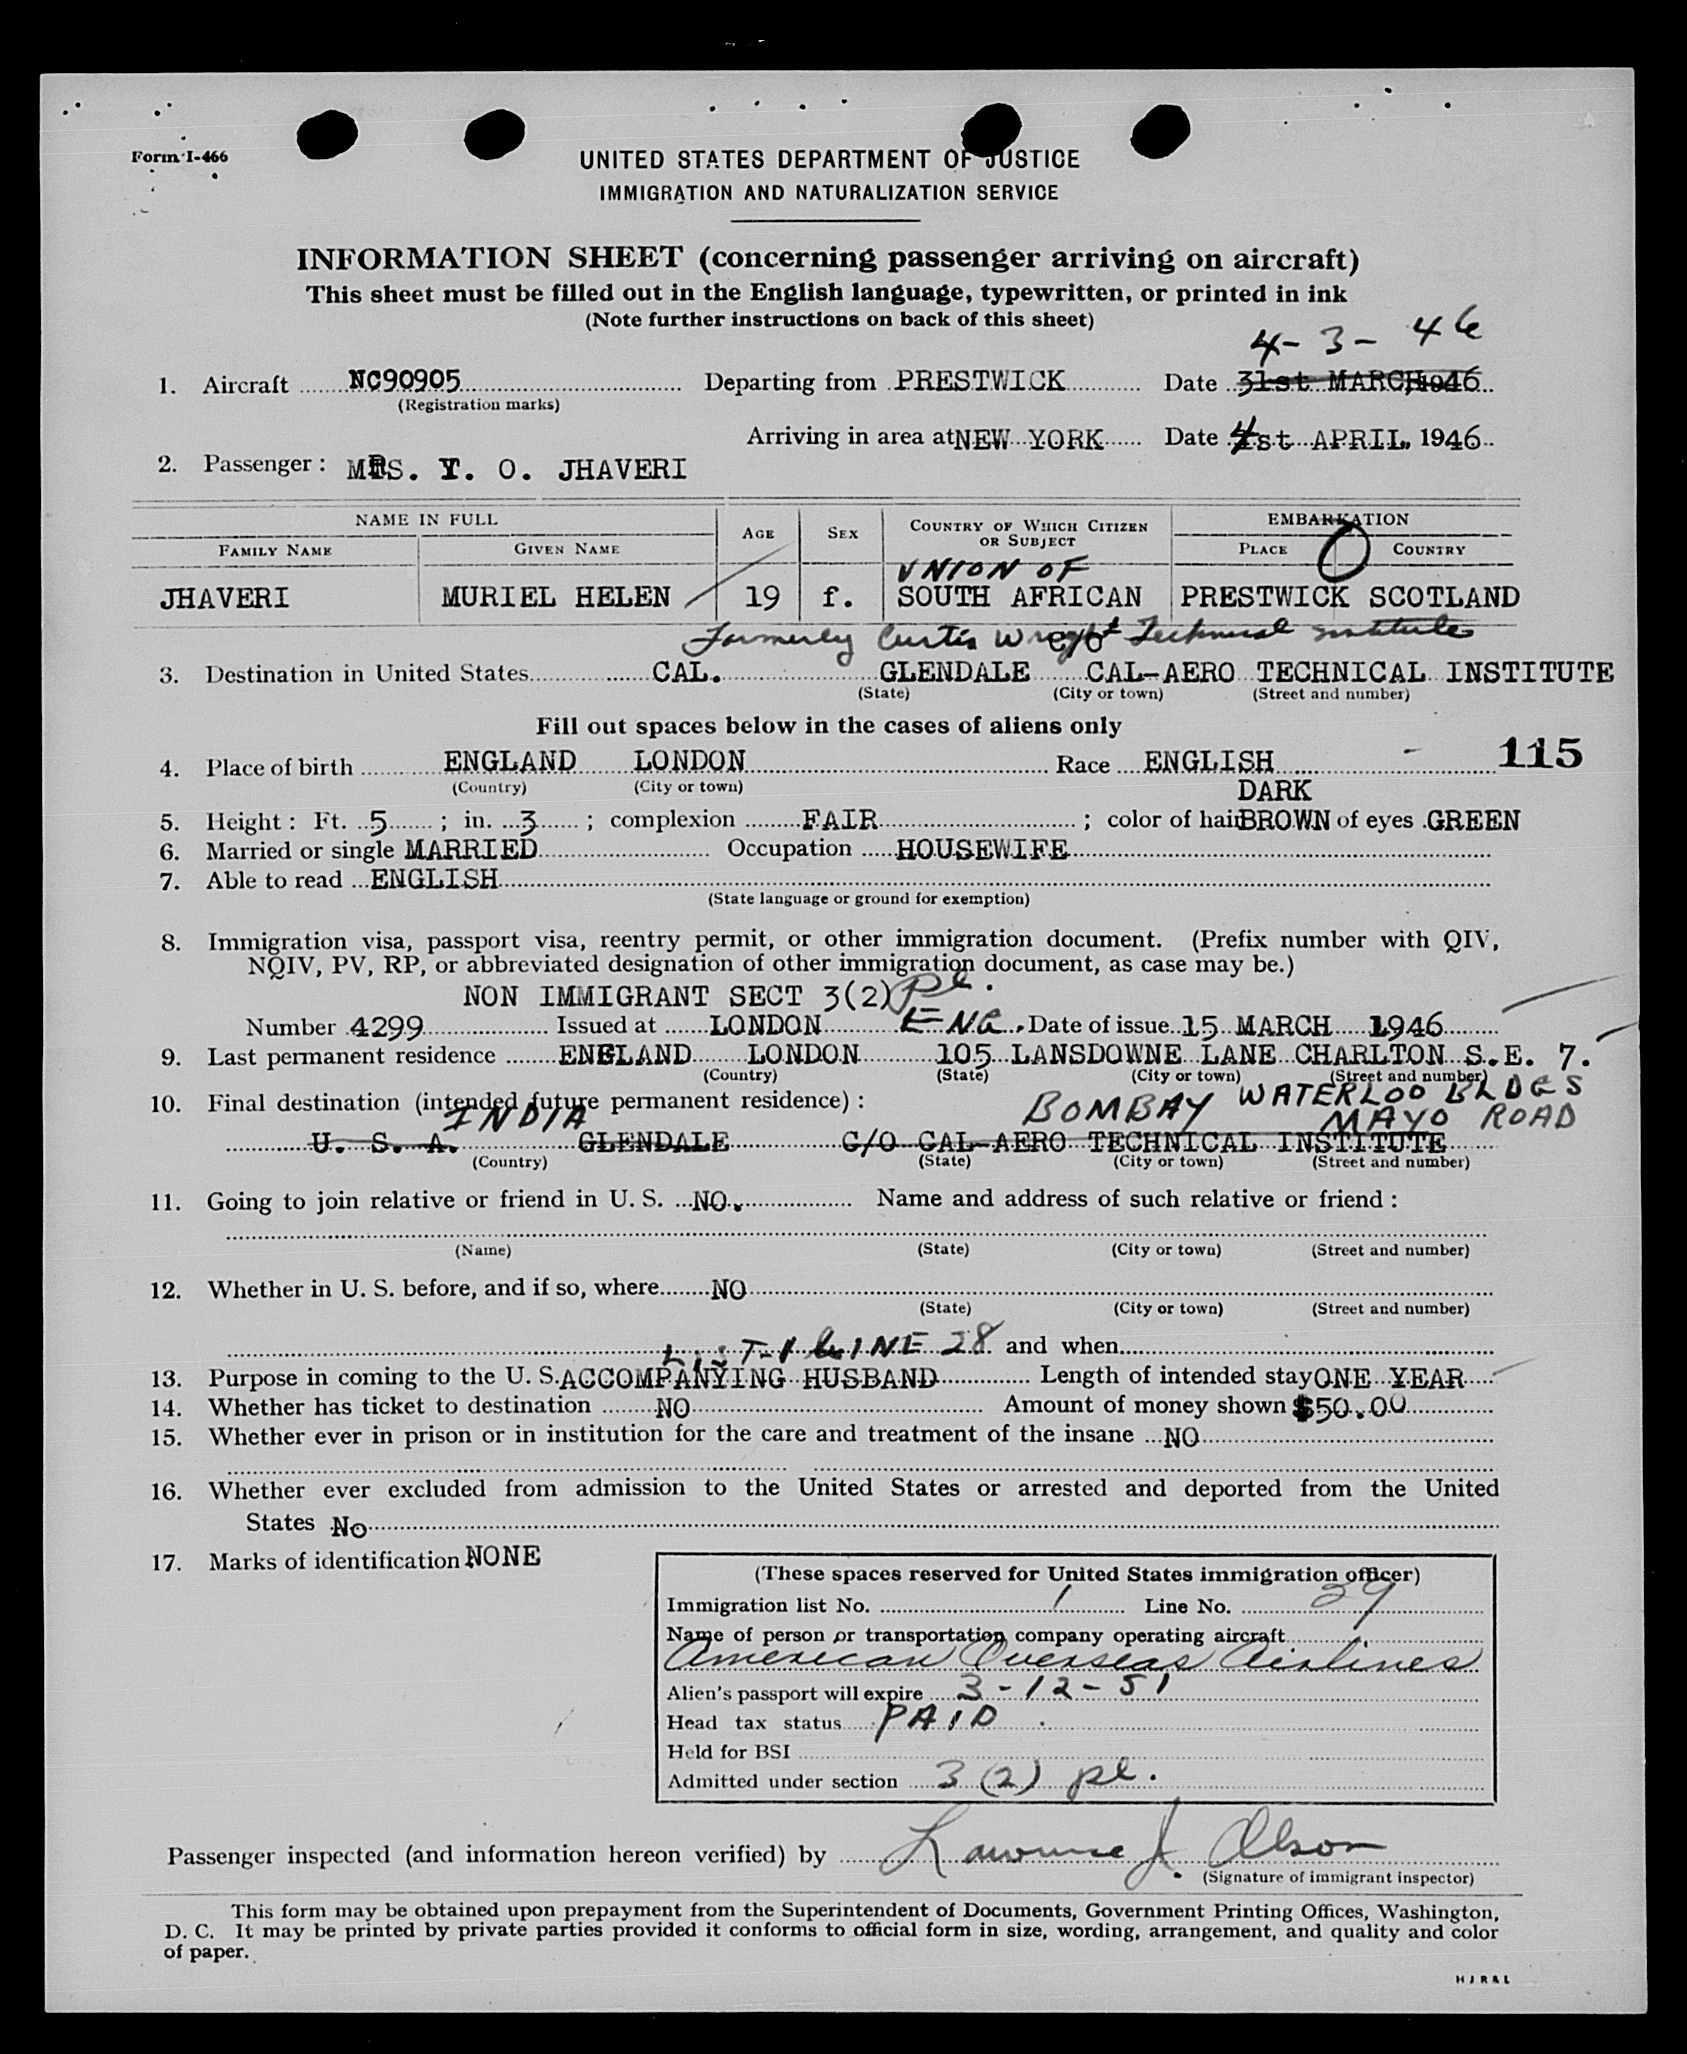 Form I-466
UNITED STATES DEPARTMENT OF JUSTICE
IMMIGRATION AND NATURALIZATION SERVICE
INFORMATION SHEET (concerning passenger arriving on aircraft)
This sheet must be filled out in the English language, typewritten, or printed in ink
(Note further instructions on back of this sheet)
4-3-46
1. Aircraft NC90905 Departing from PRESTWICK Date 31st MARCH, 1946
(Registration marks)
Arriving in area at NEW YORK Date 4st APRIL, 1946
2. Passenger: MRS. Y. O. JHAVERI
NAME IN FULL AGE SEX COUNTRY OF WHICH CITIZEN OR SUBJECT EMBARKATION
FAMILY NAME GIVEN NAME PLACE COUNTRY
UNION OF
JHAVERI MURIEL HELEN 19 f. SOUTH AFRICAN PRESTWICK SCOTLAND
Formerly Curtis Wright Technical Institute
c/o
3. Destination in United States CAL. GLENDALE CAL-AERO TECHNICAL INSTITUTE
(State) (City or town) (Street and number)
Fill out spaces below in the cases of aliens only
115
4. Place of birth ENGLAND LONDON Race ENGLISH
(Country) (City or town)
DARK
5. Height: Ft. 5; in. 3; complexion FAIR; color of hair BROWN of eyes GREEN
6. Married or single MARRIED Occupation HOUSEWIFE
7. Able to read ENGLISH
(State language or ground for exemption)
8. Immigration visa, passport visa, reentry permit, or other immigration document. (Prefix number with QIV,
NQIV, PV, RP, or abbreviated designation of other immigration document, as case may be.)
NON IMMIGRANT SECT 3(2) pl.
Number 4299 Issued at LONDON ENG. Date of issue 15 MARCH 1946
9. Last permanent residence ENGLAND LONDON 105 LANSDOWNE LANE CHARLTON S.E. 7.
(Country) (State) (City or town) (Street and number)
10. Final destination (intended future permanent residence):
INDIA BOMBAY WATERLOO BLDGS
MAYO ROAD
U. S. A. GLENDALE C/O CAL-AERO TECHNICAL INSTITUTE
(Country) (State) (City or town) (Street and number)
11. Going to join relative or friend in U. S. NO. Name and address of such relative or friend:
(Name) (State) (City or town) (Street and number)
12. Whether in U. S. before, and if so, where NO
(State) (City or town) (Street and number)
LIST-1 LINE 28 and when
13. Purpose in coming to the U. S. ACCOMPANYING HUSBAND Length of intended stay ONE YEAR
14. Whether has ticket to destination NO Amount of money shown $50.00
15. Whether ever in prison or in institution for the care and treatment of the insane NO
16. Whether ever excluded from admission to the United States or arrested and deported from the United
States No
17. Marks of identification NONE
(These spaces reserved for United States immigration officer)
Immigration list No. 1 Line No. 39
Name of person or transportation company operating aircraft
American Overseas Airlines
Alien's passport will expire 3-12-51
Head tax status PAID
Held for BSI
Admitted under section 3(2) pl.
Passenger inspected (and information hereon verified) by Lawrence J. Olson
(Signature of immigrant inspector)
This form may be obtained upon prepayment from the Superintendent of Documents, Government Printing Offices, Washington,
D. C. It may be printed by private parties provided it conforms to official form in size, wording, arrangement, and quality and color
of paper.
HJR&L